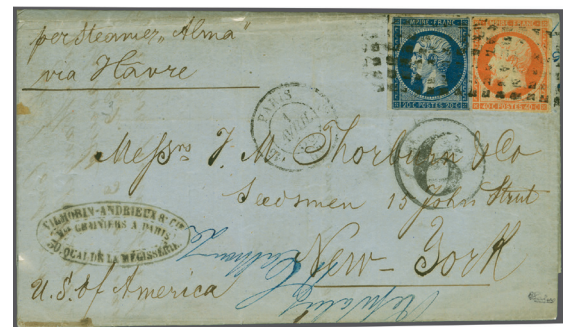 per Steamer „Alma"
via Hâvre
EMPIRE FRANC.
20 C. POSTES 20 C.
EMPIRE FRANC.
40 C. POSTES 40 C.
PARIS
1
6
Messrs J. M. Thorburn & Co
Seedsmen 15 John Street
New-York
U.S. of America
VILMORIN-ANDRIEUX & Cie
Mds GRAINIERS A PARIS
30, QUAI DE LA MÉGISSERIE